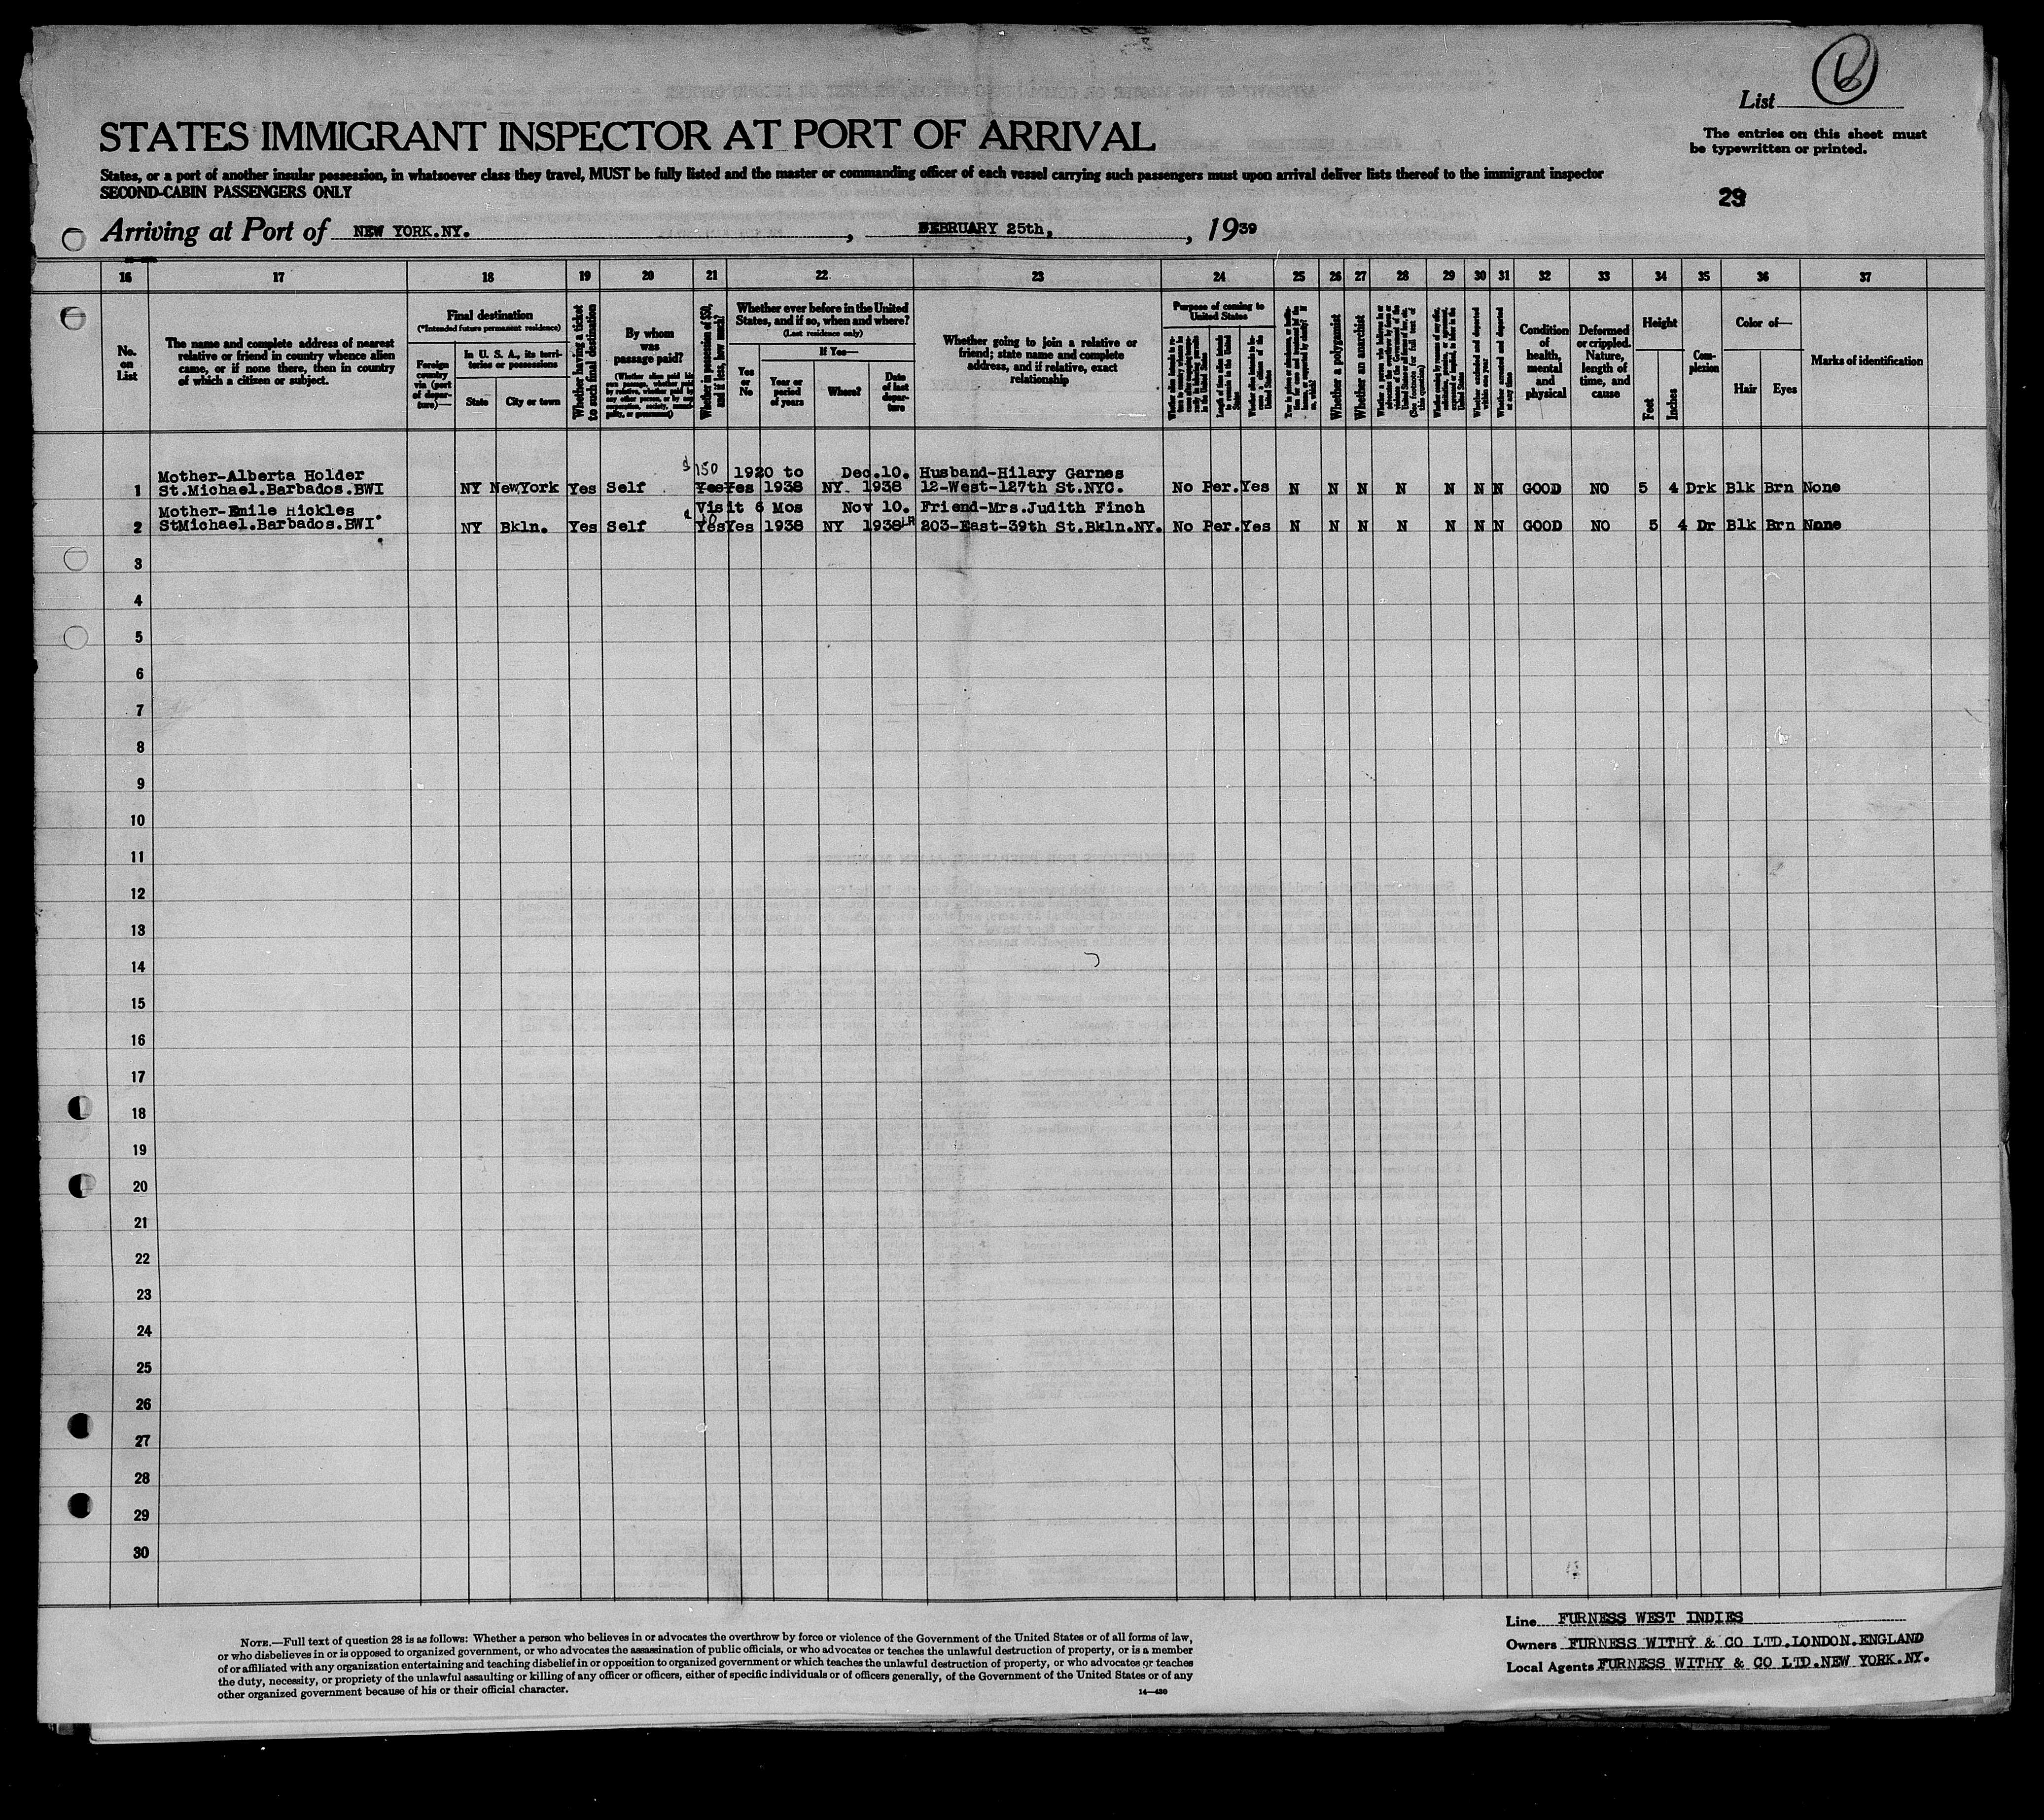 6
List
STATES IMMIGRANT INSPECTOR AT PORT OF ARRIVAL
The entries on this sheet must
be typewritten or printed.
States, or a port of another insular possession, in whatsoever class they travel, MUST be fully listed and the master or commanding officer of each vessel carrying such passengers must upon arrival deliver lists thereof to the immigrant inspector
SECOND-CABIN PASSENGERS ONLY
29
Arriving at Port of NEW YORK.NY. , FEBRUARY 25th, , 1939
16 17 18 19 20 21 22 23 24 25 26 27 28 29 30 31 32 33 34 35 36 37
No. on List
The name and complete address of nearest relative or friend in country whence alien came, or if none there, then in country of which a citizen or subject.
Final destination
(*Intended future permanent residence)
Foreign country via (port of departure)—
In U. S. A., its territories or possessions
State
City or town
Whether having a ticket to such final destination
By whom was passage paid?
Whether in possession of $50, and if less, how much?
Whether ever before in the United States, and if so, when and where?
(Last residence only)
Yes or No
If Yes—
Year or period of years
Where?
Date of last departure
Whether going to join a relative or friend; state name and complete address, and if relative, exact relationship
Purpose of coming to United States
Whether a polygamist
Whether an anarchist
Condition of health, mental and physical
Deformed or crippled. Nature, length of time, and cause
Height
Feet
Inches
Complexion
Color of—
Hair
Eyes
Marks of identification
$150 1920 to Dec.10. Husband-Hilary Garnes
Mother-Alberta Holder
1 St.Michael.Barbados.BWI NY NewYork Yes Self Yes Yes 1938 NY. 1938 12-West-127th St.NYC. No Per. Yes N N N N N N N GOOD NO 5 4 Drk Blk Brn None
Mother-Emile Hickles Visit 6 Mos Nov 10. Friend-Mrs.Judith Finch
2 StMichael.Barbados.BWI NY Bkln. Yes Self Yes Yes 1938 NY 1938 203-East-39th St.Bkln.NY. No Per. Yes N N N N N N N GOOD NO 5 4 Dr Blk Brn None
3
4
5
6
7
8
9
10
11
12
13
14
15
16
17
18
19
20
21
22
23
24
25
26
27
28
29
30
Line FURNESS WEST INDIES
Owners FURNESS WITHY & CO LTD.LONDON.ENGLAND
Local Agents FURNESS WITHY & CO LTD.NEW YORK.NY.
NOTE.—Full text of question 28 is as follows: Whether a person who believes in or advocates the overthrow by force or violence of the Government of the United States or of all forms of law,
or who disbelieves in or is opposed to organized government, or who advocates the assassination of public officials, or who advocates or teaches the unlawful destruction of property, or is a member
of or affiliated with any organization entertaining and teaching disbelief in or opposition to organized government or which teaches the unlawful destruction of property, or who advocates or teaches
the duty, necessity, or propriety of the unlawful assaulting or killing of any officer or officers, either of specific individuals or of officers generally, of the Government of the United States or of any
other organized government because of his or their official character.
14—430